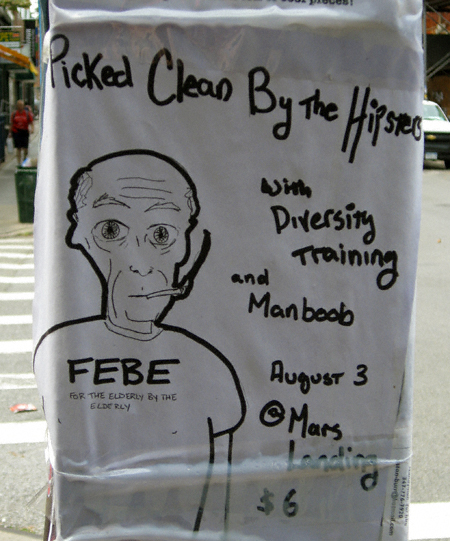 Picked Clean By The Hipsters
with
Diversity
Training
and
Manboob
August 3
@ Mars
Landing
$6
FEBE
FOR THE ELDERLY BY THE
ELDERLY